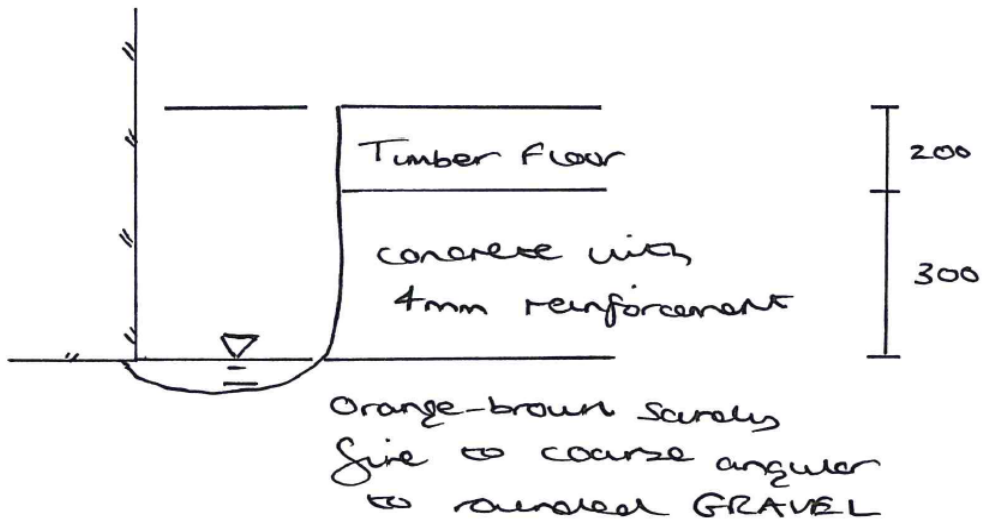 Timber Floor
200
concrete with
4mm reinforcement
300
Orange-brown sandy
fine to coarse angular
to rounded GRAVEL